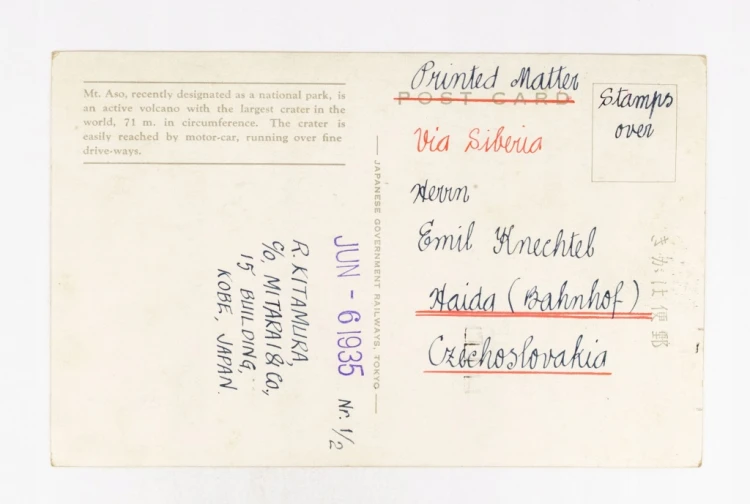 Mt. Aso, recently designated as a national park, is
an active volcano with the largest crater in the
world, 71 m. in circumference. The crater is
easily reached by motor-car, running over fine
drive-ways.
Printed Matter
POST CARD
Stamps
over
Via Siberia
Herrn
Emil Knechtel
Haida (Bahnhof)
Czechoslovakia
JAPANESE GOVERNMENT RAILWAYS, TOKYO
JUN - 6 1935
Nr. 1/2
R. KITAMURA,
c/o, MITARAI & Co,
15 BUILDING,
KOBE, JAPAN.